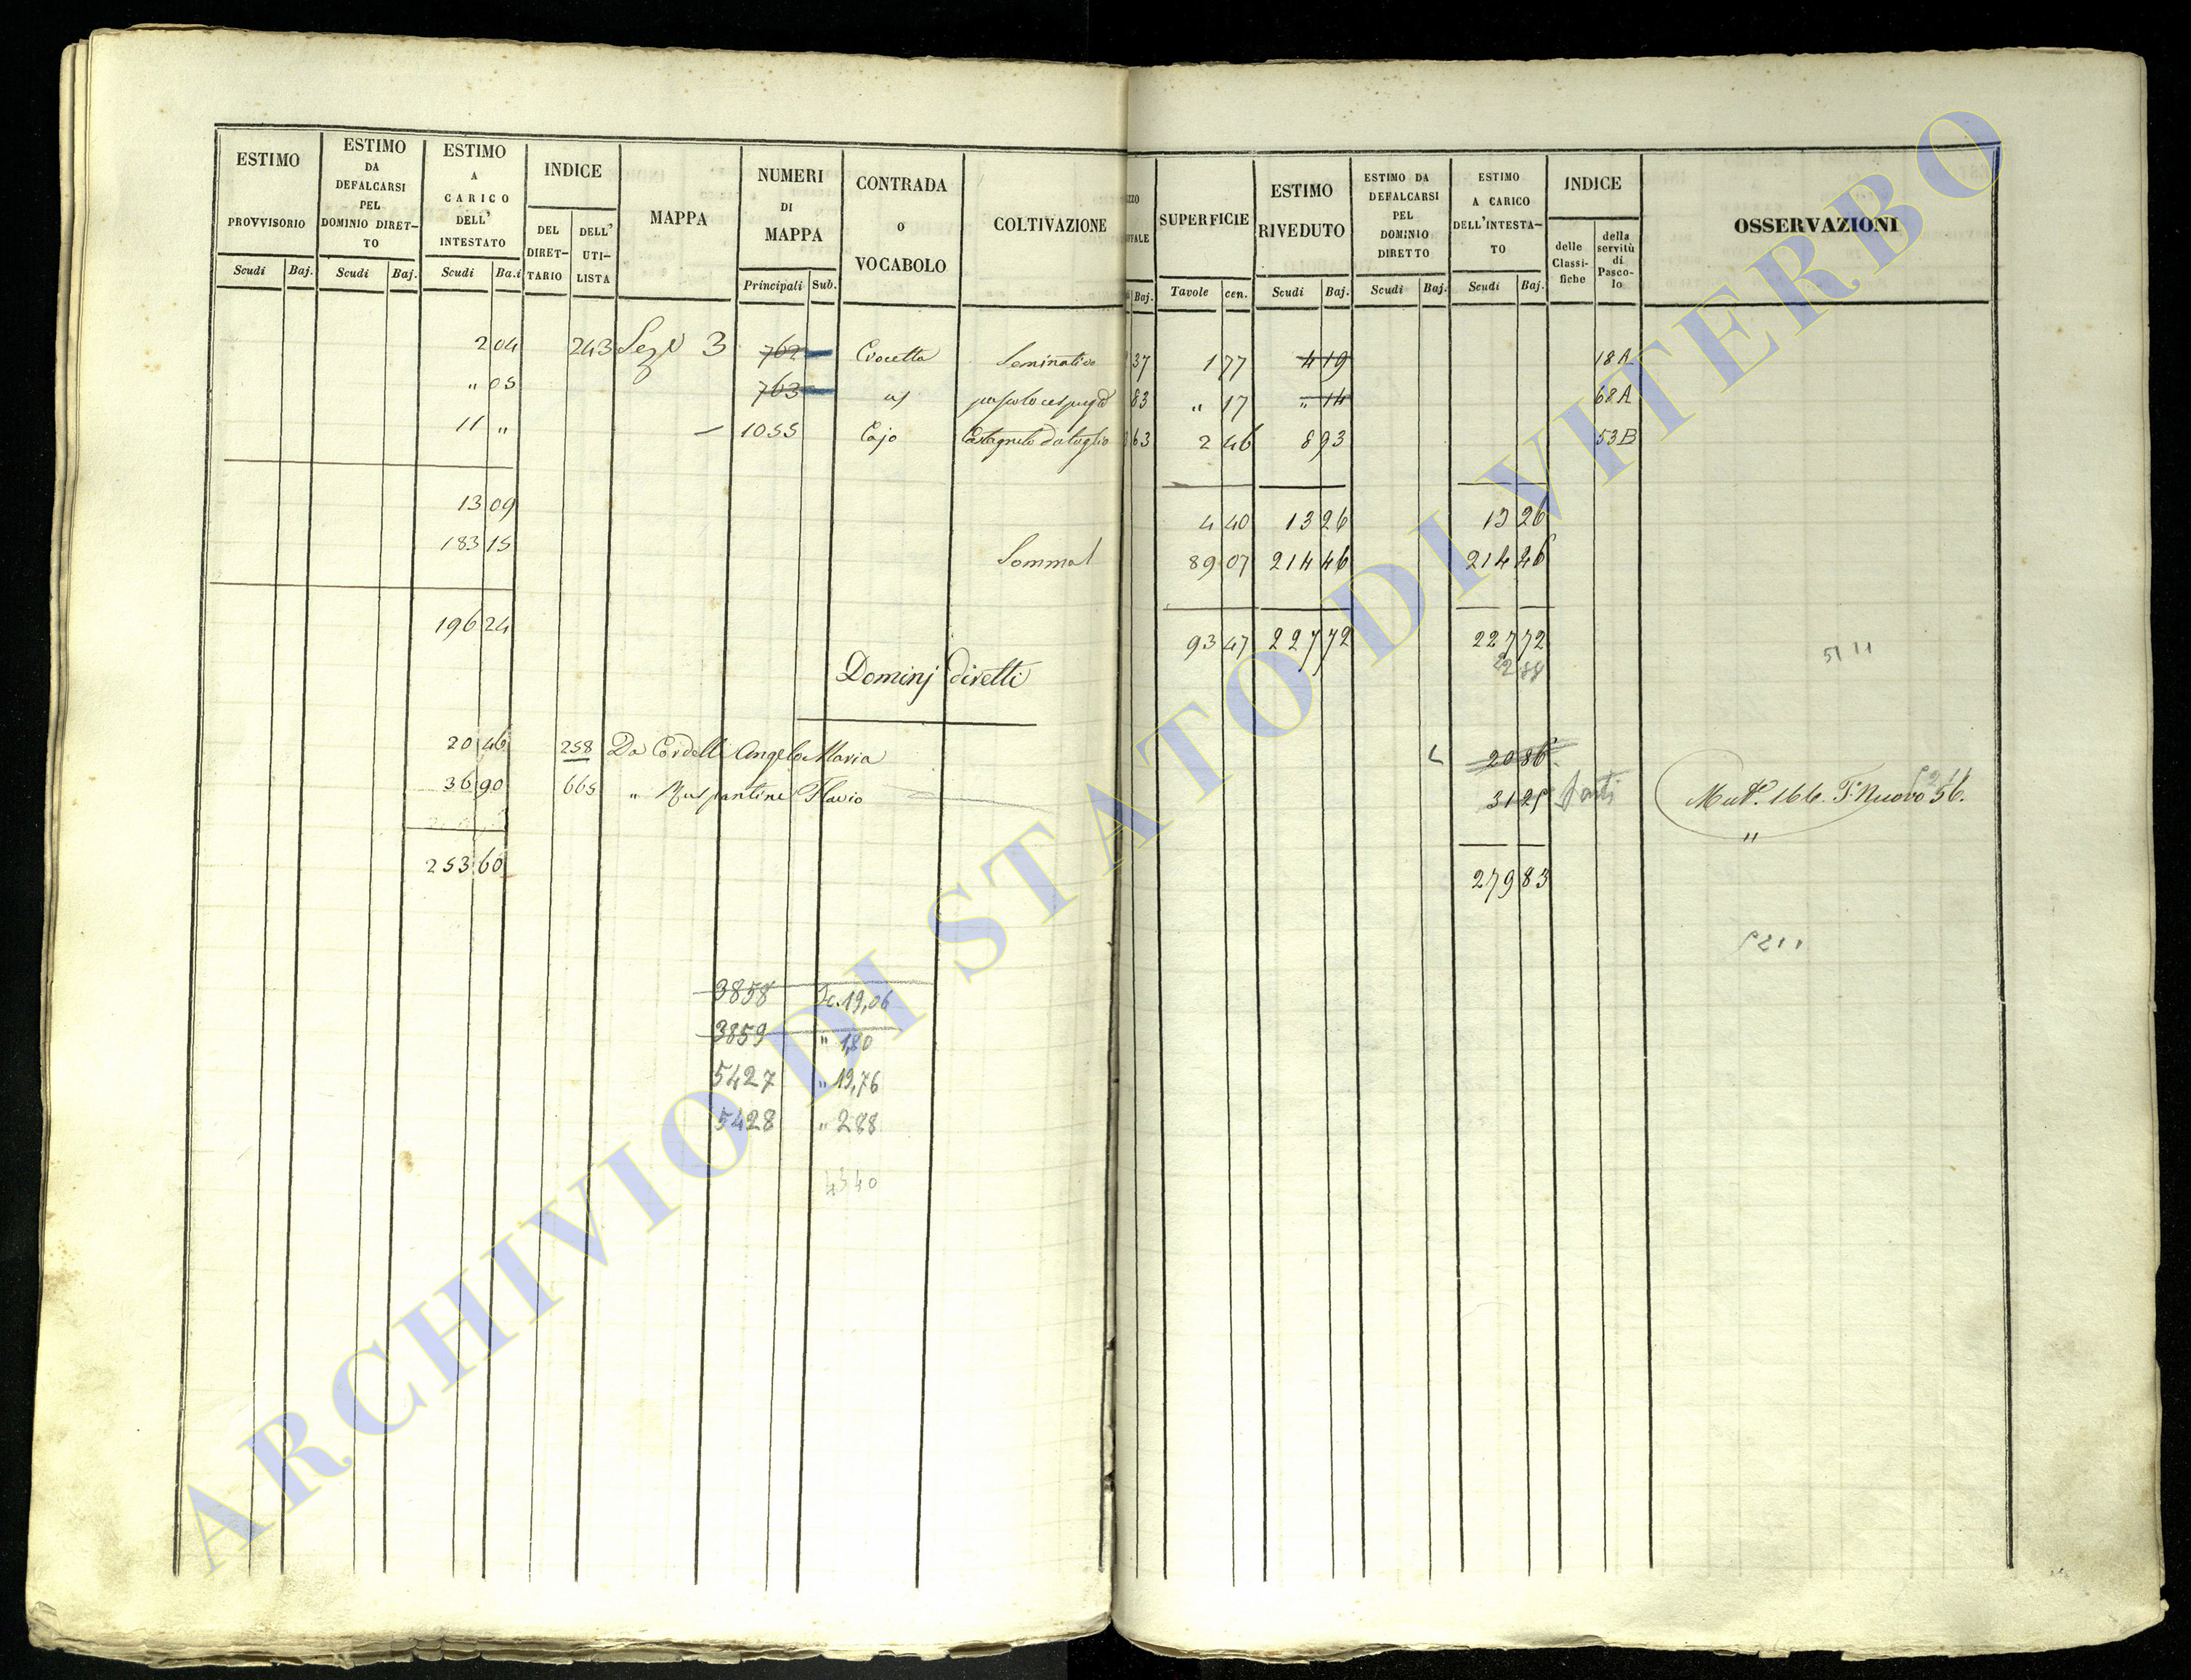 ESTIMO PROVVISORIO
Scudi Baj.
ESTIMO DA DEFALCARSI PEL DOMINIO DIRET-TO
Scudi Baj.
ESTIMO A CARICO DELL' INTESTATO
Scudi Ba.i
INDICE
DEL DIRET-TARIO
DELL' UTI-LISTA
MAPPA
NUMERI DI MAPPA
Principali Sub.
CONTRADA o VOCABOLO
COLTIVAZIONE
ZZO
UFFALE
Baj.
SUPERFICIE
Tavole cen.
ESTIMO RIVEDUTO
Scudi Baj.
ESTIMO DA DEFALCARSI PEL DOMINIO DIRETTO
Scudi Baj.
ESTIMO A CARICO DELL'INTESTA-TO
Scudi Baj.
INDICE
delle Classi-fiche
della servitù di Pasco-lo
OSSERVAZIONI
2 04 243 3 762 Crocetta Seminativo 37 1 77 4 19 18A
" 05 763 83 " 17 " 14 68A
11 " 1055 Cajo Castagneto da taglio 63 2 46 8 93 53B
13 09 4 40 13 26 13 26
183 15 Somma 89 07 214 46 214 46
196 24 93 47 227 72 227 72
Dominj diretti
20 46 258 Da Cordelli Angelo Maria 20 86
36 90 665 " Ruspantini Flavio 31 25 Mut.e 166. T. Nuovo 56.
"
253 60 279 83
3858 Sc. 19,06
3859 " 1,80
5427 " 19,76
5428 " 288
4340
5211
ARCHIVIO DI STATO DI VITERBO